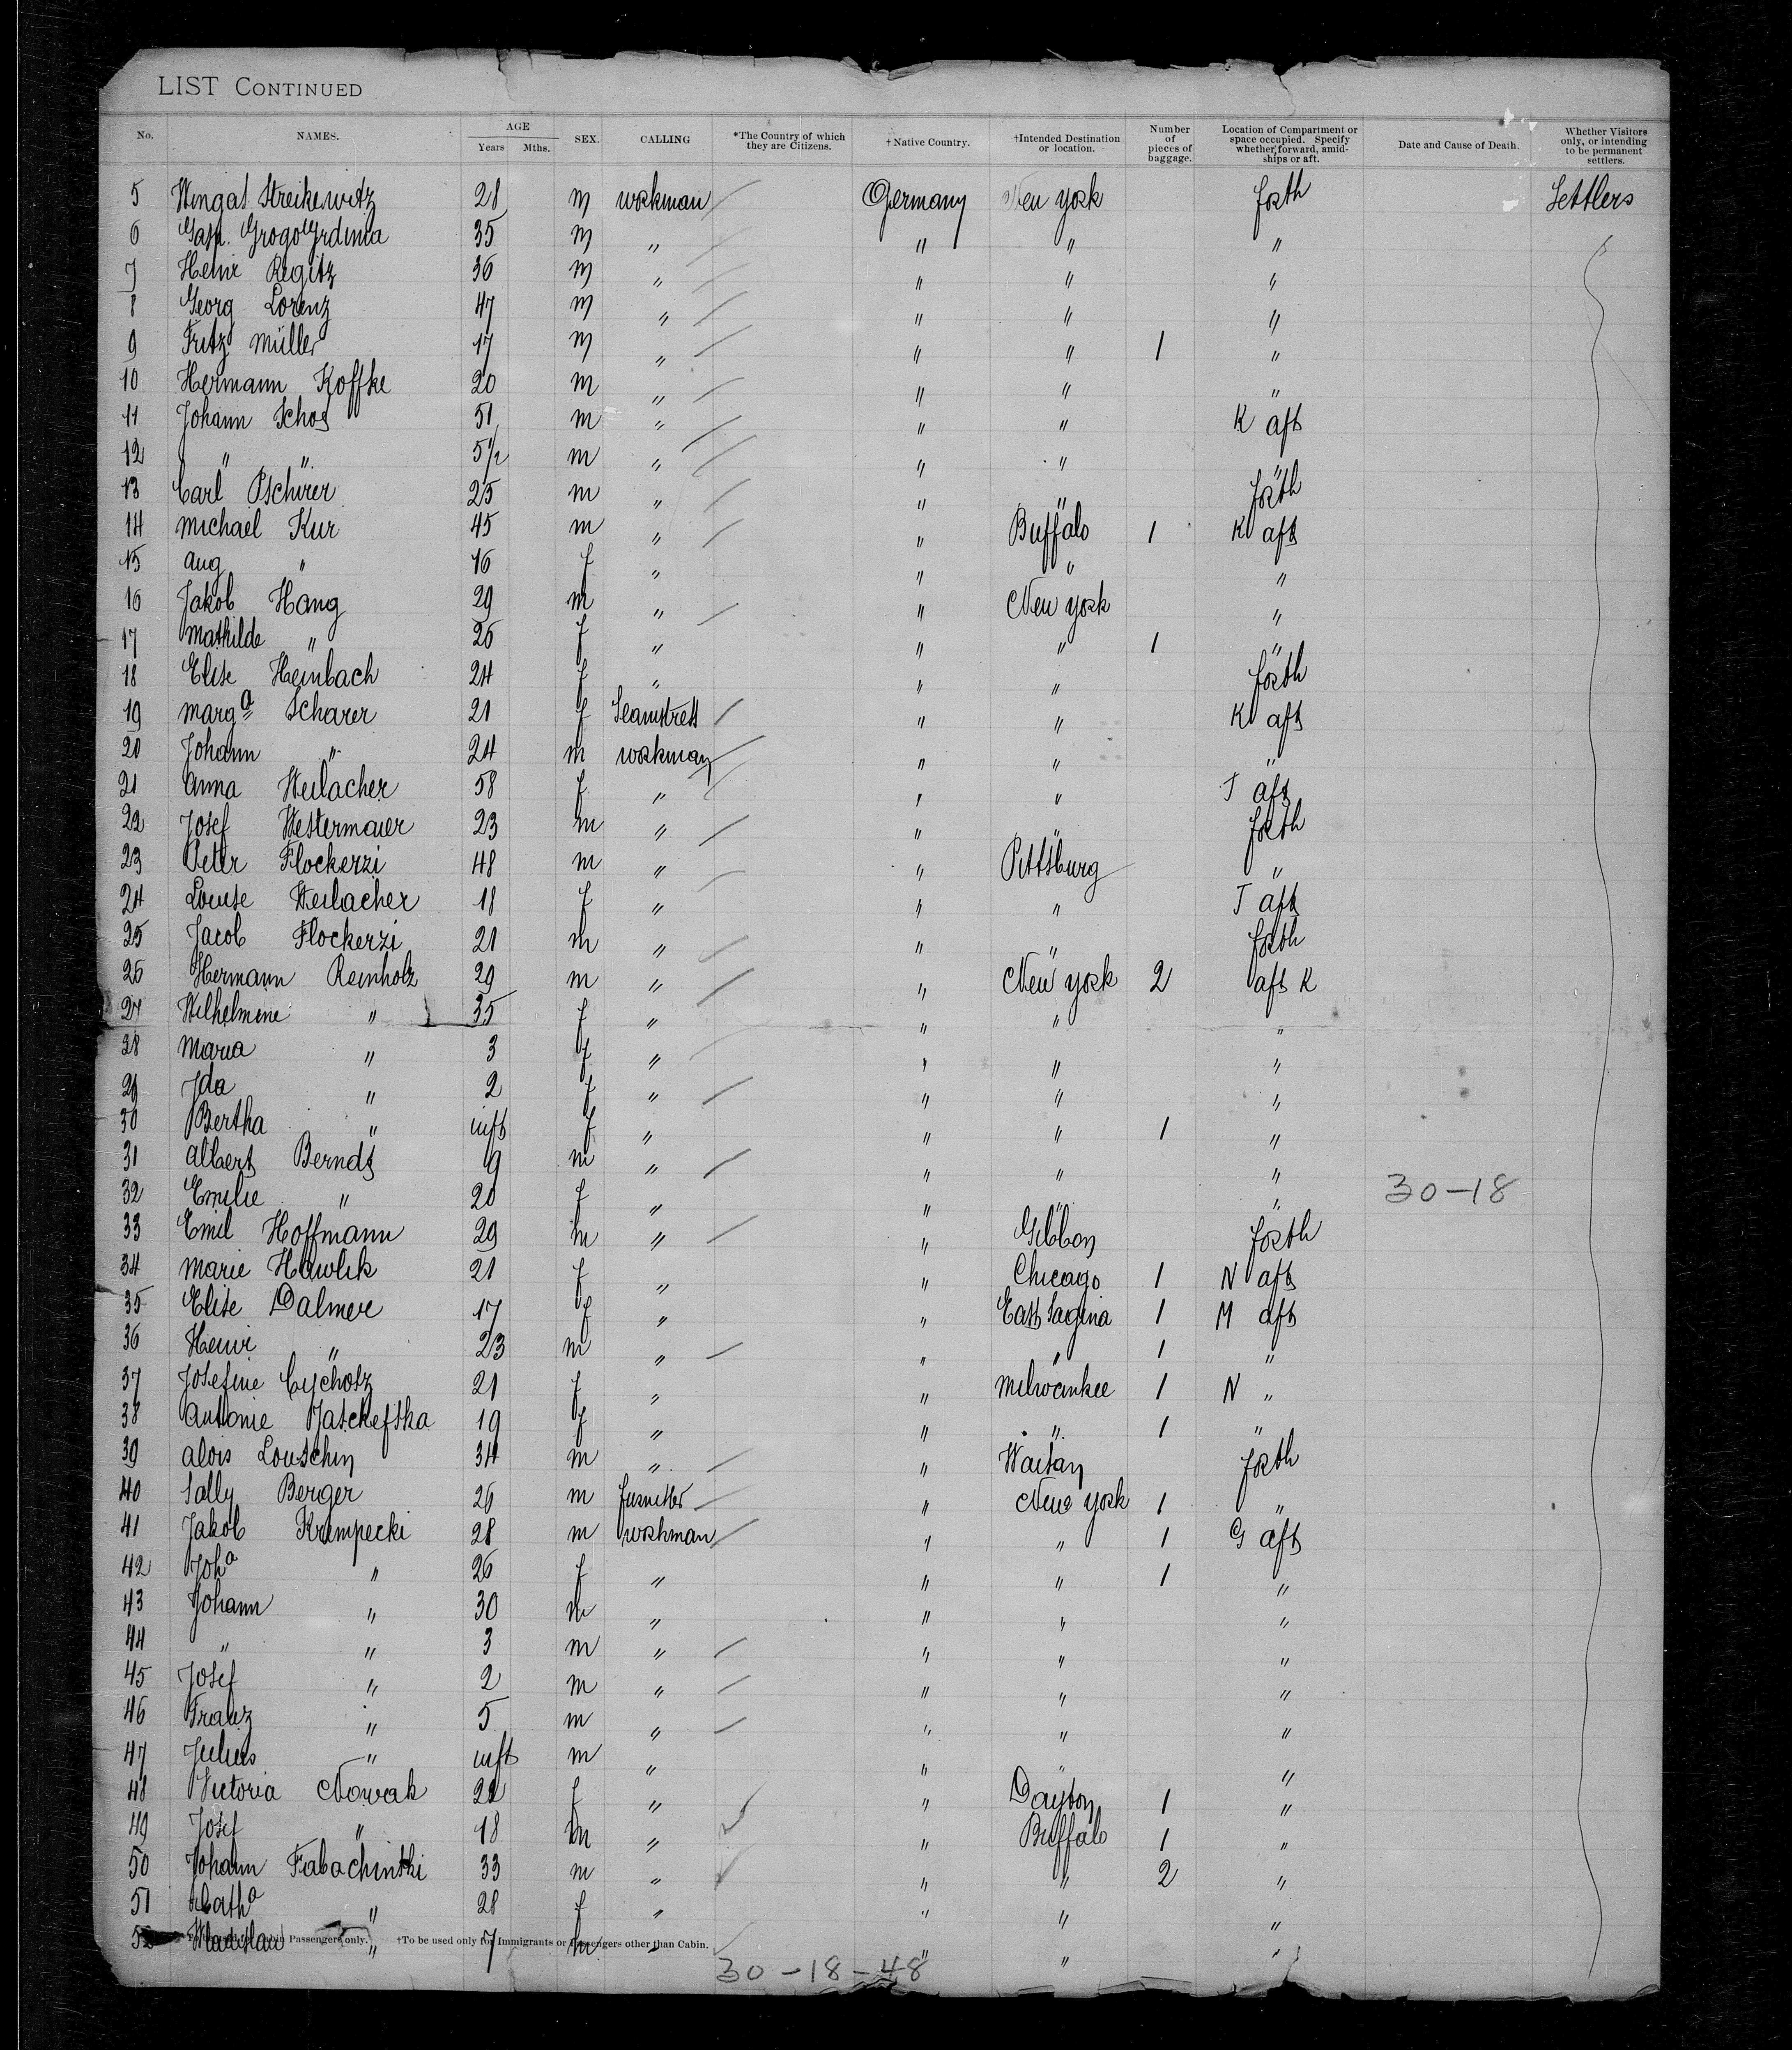 LIST CONTINUED
No. NAMES. AGE Years Mths. SEX. CALLING *The Country of which they are Citizens. †Native Country. †Intended Destination or location. Number of pieces of baggage. Location of Compartment or space occupied. Specify whether forward, amidships or aft. Date and Cause of Death. Whether Visitors only, or intending to be permanent settlers.
5 Wingas Streikewitz 28 m workman Germany New York forth Settlers
6 35 m " " " "
7 Heinr Regitz 36 m " " " "
8 Georg Lorenz 47 m " " " "
9 Fritz Müller 17 m " " " 1 "
10 Hermann Koffke 20 m " " " "
11 Johann Schos 51 m " " " K aft
12 " " 5 1/2 m " " " "
13 Carl Pschirer 25 m " " " forth
14 Michael Kur 45 m " " Buffalo 1 K aft
15 Aug " 16 f " " " "
16 Jakob Hang 29 m " " New York "
17 Mathilde " 26 f " " " 1 "
18 Elise Heinbach 24 f " " " forth
19 Marga Scharer 21 f Seamstress " " K aft
20 Johann " 24 m workman " " "
21 Anna Weilacher 58 f " " " J aft
22 Josef Westermaier 23 m " " " forth
23 Peter Flockerzi 48 m " " Pittsburg "
24 Louise Weilacher 18 f " " " J aft
25 Jacob Flockerzi 21 m " " " forth
26 Hermann Reinholz 29 m " " New York 2 aft K
27 Wilhelmine " 35 f " " " "
28 Maria " 3 f " " " "
29 Ida " 2 f " " " "
30 Bertha " inft f " " " 1 "
31 Albert Berndt 9 m " " " "
32 Emilie " 20 f " " " " 30-18
33 Emil Hoffmann 29 m " " Gibbon forth
34 Marie Hawlik 21 f " " Chicago 1 N aft
35 Elise Dalmer 17 f " " East Sagina 1 M aft
36 Heinr " 23 m " " " 1 "
37 Josefine Cychotz 21 f " " Milwaukee 1 N "
38 Antonie Jaschefska 19 f " " " 1 "
39 Alois Louschin 34 m " " forth
40 Sally Berger 26 m " New York 1 "
41 Jakob Krempecki 28 m workman " " 1 G aft
42 Joha " 26 f " " " 1 "
43 Johann " 30 m " " " "
44 " " 3 m " " " "
45 Josef " 2 m " " " "
46 Franz " 5 m " " " "
47 Julius " inft m " " " "
48 Victoria Nowak 22 f " " Dayton 1 "
49 Josef " 18 m " " Buffalo 1 "
50 Johann Fabachinski 33 m " " " 2 "
51 Catha " 28 f " " " "
52 Wladislaw " 7 m " " " "
Cabin Passengers only. †To be used only for Immigrants or Passengers other than Cabin.
30-18-48